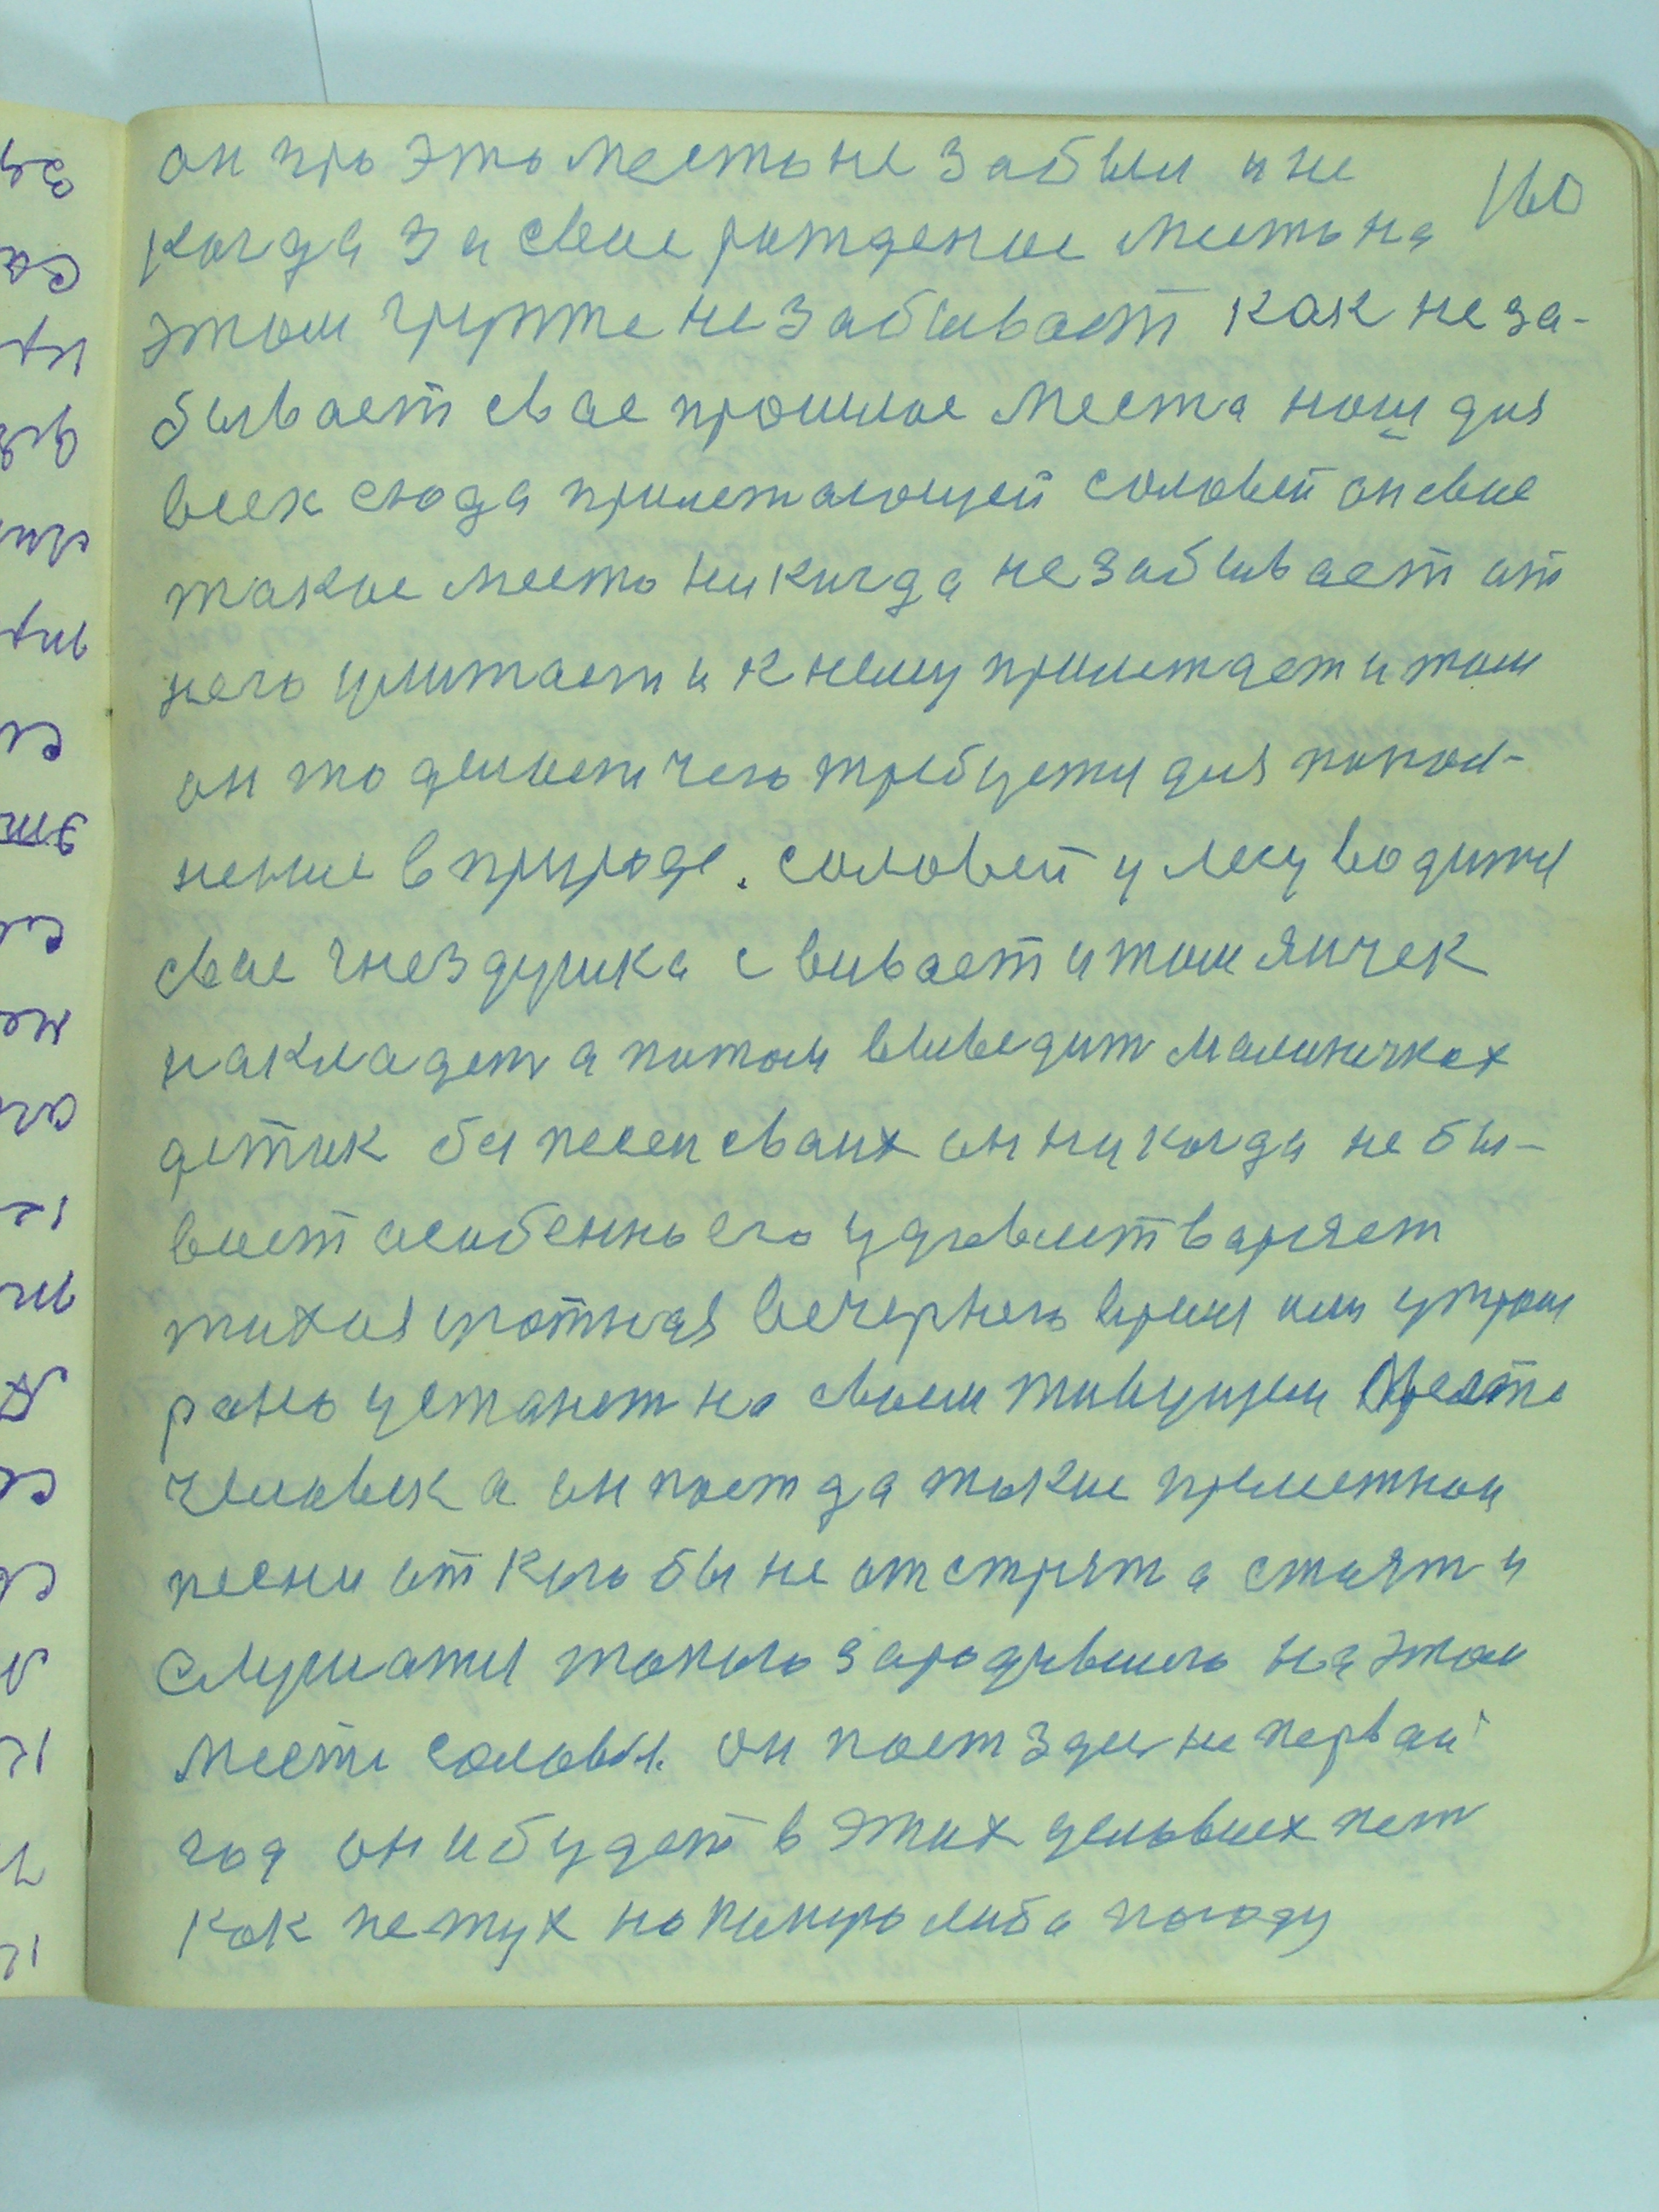 160
он про это место не забыл и не
когда за свое рождение место на
этом грунте не забывает как не за-
бывает свае прошлое места наш для
всех сюда прилетающей соловей он свое
такое место никогда не забывает от
него улитает и к нему прилетает и там
он то делает чего требуется для попол-
нение в природе. соловей у лесу водится
свае гнездушка свивает и там яичек
накладет а потом выведит малиничках
детик без песен сваих он никогда не бы-
вает особенно его удовлетваряет
тихая уютная вечернего время или утром
рано устанет на своем живущем месте
человек а он поет да такие прелетнои
песни от кого бы не отстрят а стоят и
слушати такого зародившего на этом
месте соловья. он поет здесь не первай
год он и будет в этих условиех пет
как петух на пагиру либа погоду